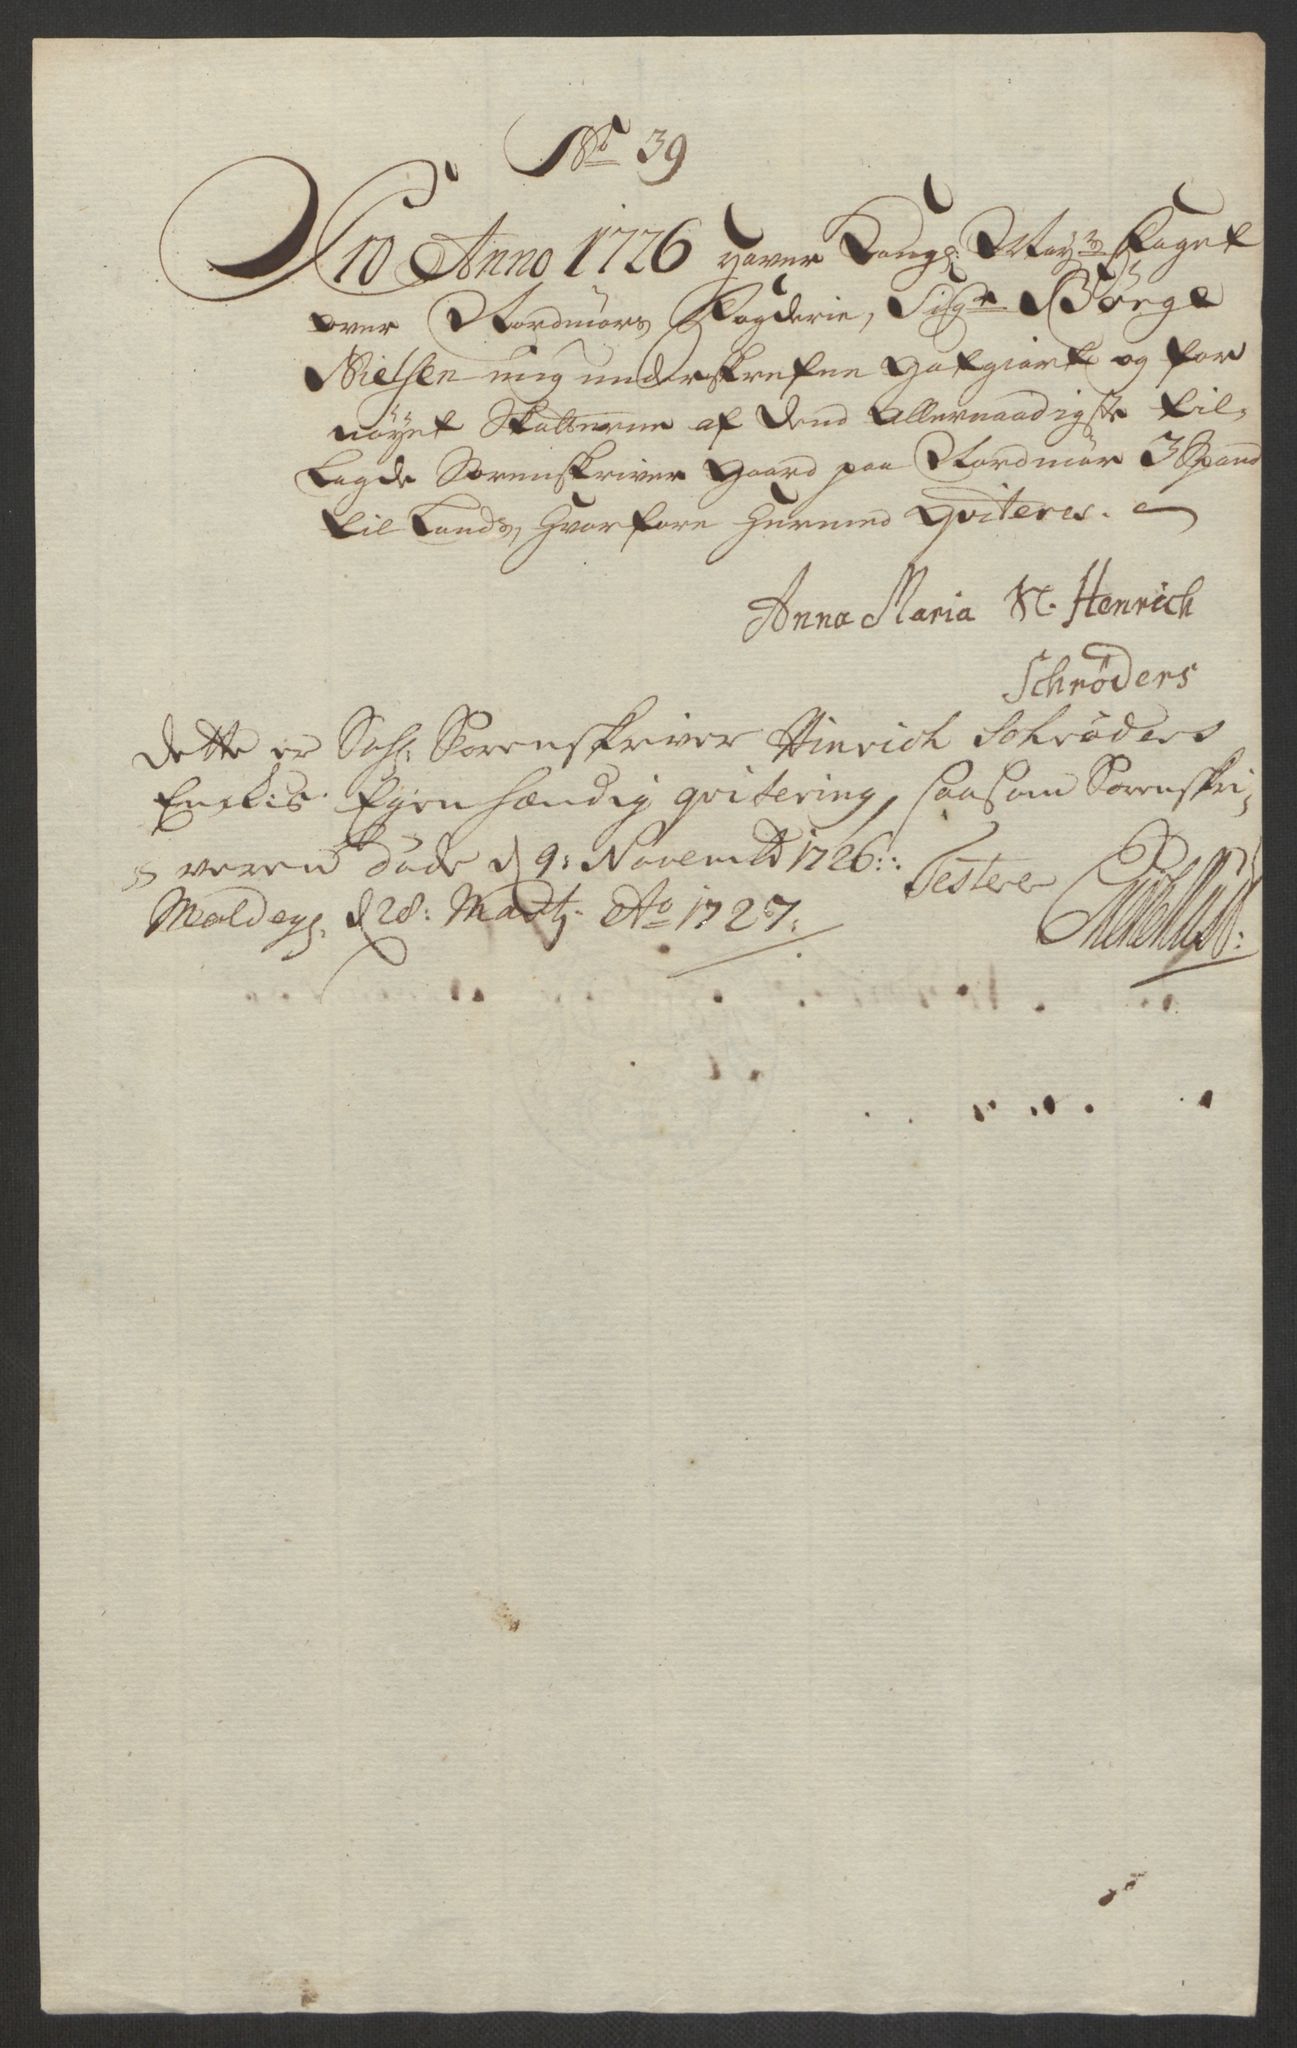 No 39
Pro Anno 1726 haver Kongl: May:ts Foget
over Nordmørs Fogderie, Sigr Børge
Nielsen mig underskrefne Godgiort og for
nøyet Skatterne af dend allernaadigste til-
lagde Sorenskriver gaard paa Nordmør 3 Spand
til Lands, Hvorfore Hermed Qviteres.
Anna Maria Sl. Henrich
Schrøders
Dette er Sahl: Sorenskriver Hinrich Schrøders
Enckis Egenhændig qvitering, saasom Sorenskri-
veren døde d 9: Novembr 1726:
Testerer
Moldeg. d 28: Martj Ao 1727: